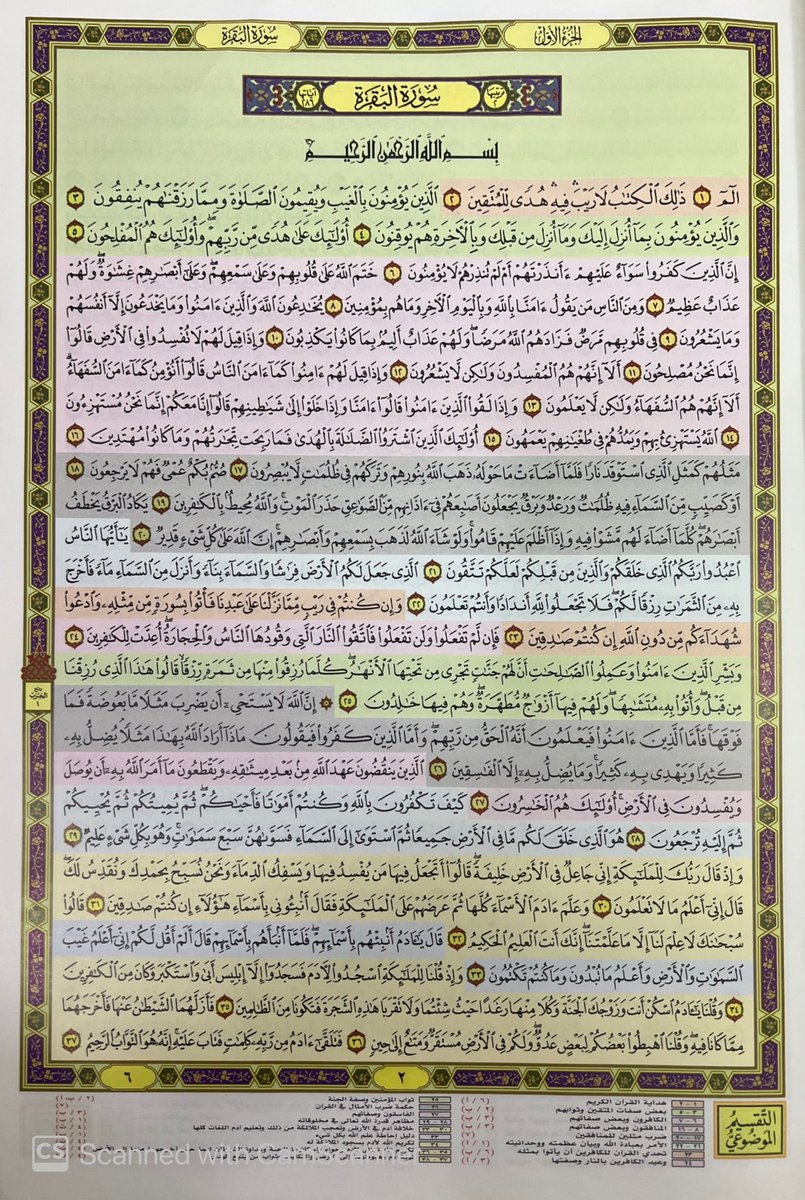 سُورَةُ البَقَرَةِ
الجُزْءُ الأَوَّلُ
ترتيبها ٢ سُورَةُ البَقَرَةِ آياتها ٢٨٦
بِسْمِ ٱللَّهِ ٱلرَّحْمَٰنِ ٱلرَّحِيمِ
الٓمٓ ١ ذَٰلِكَ ٱلْكِتَٰبُ لَا رَيْبَ ۛ فِيهِ ۛ هُدًى لِّلْمُتَّقِينَ ٢ ٱلَّذِينَ يُؤْمِنُونَ بِٱلْغَيْبِ وَيُقِيمُونَ ٱلصَّلَوٰةَ وَمِمَّا رَزَقْنَٰهُمْ يُنفِقُونَ ٣
وَٱلَّذِينَ يُؤْمِنُونَ بِمَآ أُنزِلَ إِلَيْكَ وَمَآ أُنزِلَ مِن قَبْلِكَ وَبِٱلْءَاخِرَةِ هُمْ يُوقِنُونَ ٤ أُو۟لَٰٓئِكَ عَلَىٰ هُدًى مِّن رَّبِّهِمْ ۖ وَأُو۟لَٰٓئِكَ هُمُ ٱلْمُفْلِحُونَ ٥
إِنَّ ٱلَّذِينَ كَفَرُوا۟ سَوَآءٌ عَلَيْهِمْ ءَأَنذَرْتَهُمْ أَمْ لَمْ تُنذِرْهُمْ لَا يُؤْمِنُونَ ٦ خَتَمَ ٱللَّهُ عَلَىٰ قُلُوبِهِمْ وَعَلَىٰ سَمْعِهِمْ ۖ وَعَلَىٰٓ أَبْصَٰرِهِمْ غِشَٰوَةٌ ۖ وَلَهُمْ
عَذَابٌ عَظِيمٌ ٧ وَمِنَ ٱلنَّاسِ مَن يَقُولُ ءَامَنَّا بِٱللَّهِ وَبِٱلْيَوْمِ ٱلْءَاخِرِ وَمَا هُم بِمُؤْمِنِينَ ٨ يُخَٰدِعُونَ ٱللَّهَ وَٱلَّذِينَ ءَامَنُوا۟ وَمَا يَخْدَعُونَ إِلَّآ أَنفُسَهُمْ
وَمَا يَشْعُرُونَ ٩ فِى قُلُوبِهِم مَّرَضٌ فَزَادَهُمُ ٱللَّهُ مَرَضًا ۖ وَلَهُمْ عَذَابٌ أَلِيمٌۢ بِمَا كَانُوا۟ يَكْذِبُونَ ١٠ وَإِذَا قِيلَ لَهُمْ لَا تُفْسِدُوا۟ فِى ٱلْأَرْضِ قَالُوٓا۟
إِنَّمَا نَحْنُ مُصْلِحُونَ ١١ أَلَآ إِنَّهُمْ هُمُ ٱلْمُفْسِدُونَ وَلَٰكِن لَّا يَشْعُرُونَ ١٢ وَإِذَا قِيلَ لَهُمْ ءَامِنُوا۟ كَمَآ ءَامَنَ ٱلنَّاسُ قَالُوٓا۟ أَنُؤْمِنُ كَمَآ ءَامَنَ ٱلسُّفَهَآءُ ۗ
أَلَآ إِنَّهُمْ هُمُ ٱلسُّفَهَآءُ وَلَٰكِن لَّا يَعْلَمُونَ ١٣ وَإِذَا لَقُوا۟ ٱلَّذِينَ ءَامَنُوا۟ قَالُوٓا۟ ءَامَنَّا وَإِذَا خَلَوْا۟ إِلَىٰ شَيَٰطِينِهِمْ قَالُوٓا۟ إِنَّا مَعَكُمْ إِنَّمَا نَحْنُ مُسْتَهْزِءُونَ
١٤ ٱللَّهُ يَسْتَهْزِئُ بِهِمْ وَيَمُدُّهُمْ فِى طُغْيَٰنِهِمْ يَعْمَهُونَ ١٥ أُو۟لَٰٓئِكَ ٱلَّذِينَ ٱشْتَرَوُا۟ ٱلضَّلَٰلَةَ بِٱلْهُدَىٰ فَمَا رَبِحَت تِّجَٰرَتُهُمْ وَمَا كَانُوا۟ مُهْتَدِينَ ١٦
مَثَلُهُمْ كَمَثَلِ ٱلَّذِى ٱسْتَوْقَدَ نَارًا فَلَمَّآ أَضَآءَتْ مَا حَوْلَهُۥ ذَهَبَ ٱللَّهُ بِنُورِهِمْ وَتَرَكَهُمْ فِى ظُلُمَٰتٍ لَّا يُبْصِرُونَ ١٧ صُمٌّۢ بُكْمٌ عُمْىٌ فَهُمْ لَا يَرْجِعُونَ ١٨
أَوْ كَصَيِّبٍ مِّنَ ٱلسَّمَآءِ فِيهِ ظُلُمَٰتٌ وَرَعْدٌ وَبَرْقٌ يَجْعَلُونَ أَصَٰبِعَهُمْ فِىٓ ءَاذَانِهِم مِّنَ ٱلصَّوَٰعِقِ حَذَرَ ٱلْمَوْتِ ۚ وَٱللَّهُ مُحِيطٌۢ بِٱلْكَٰفِرِينَ ١٩ يَكَادُ ٱلْبَرْقُ يَخْطَفُ
أَبْصَٰرَهُمْ ۖ كُلَّمَآ أَضَآءَ لَهُم مَّشَوْا۟ فِيهِ وَإِذَآ أَظْلَمَ عَلَيْهِمْ قَامُوا۟ ۚ وَلَوْ شَآءَ ٱللَّهُ لَذَهَبَ بِسَمْعِهِمْ وَأَبْصَٰرِهِمْ ۚ إِنَّ ٱللَّهَ عَلَىٰ كُلِّ شَىْءٍ قَدِيرٌ ٢٠ يَٰٓأَيُّهَا ٱلنَّاسُ
ٱعْبُدُوا۟ رَبَّكُمُ ٱلَّذِى خَلَقَكُمْ وَٱلَّذِينَ مِن قَبْلِكُمْ لَعَلَّكُمْ تَتَّقُونَ ٢١ ٱلَّذِى جَعَلَ لَكُمُ ٱلْأَرْضَ فِرَٰشًا وَٱلسَّمَآءَ بِنَآءً وَأَنزَلَ مِنَ ٱلسَّمَآءِ مَآءً فَأَخْرَجَ
بِهِۦ مِنَ ٱلثَّمَرَٰتِ رِزْقًا لَّكُمْ ۖ فَلَا تَجْعَلُوا۟ لِلَّهِ أَندَادًا وَأَنتُمْ تَعْلَمُونَ ٢٢ وَإِن كُنتُمْ فِى رَيْبٍ مِّمَّا نَزَّلْنَا عَلَىٰ عَبْدِنَا فَأْتُوا۟ بِسُورَةٍ مِّن مِّثْلِهِۦ وَٱدْعُوا۟
شُهَدَآءَكُم مِّن دُونِ ٱللَّهِ إِن كُنتُمْ صَٰدِقِينَ ٢٣ فَإِن لَّمْ تَفْعَلُوا۟ وَلَن تَفْعَلُوا۟ فَٱتَّقُوا۟ ٱلنَّارَ ٱلَّتِى وَقُودُهَا ٱلنَّاسُ وَٱلْحِجَارَةُ ۖ أُعِدَّتْ لِلْكَٰفِرِينَ ٢٤
وَبَشِّرِ ٱلَّذِينَ ءَامَنُوا۟ وَعَمِلُوا۟ ٱلصَّٰلِحَٰتِ أَنَّ لَهُمْ جَنَّٰتٍ تَجْرِى مِن تَحْتِهَا ٱلْأَنْهَٰرُ ۖ كُلَّمَا رُزِقُوا۟ مِنْهَا مِن ثَمَرَةٍ رِّزْقًا ۙ قَالُوا۟ هَٰذَا ٱلَّذِى رُزِقْنَا
مِن قَبْلُ ۖ وَأُتُوا۟ بِهِۦ مُتَشَٰبِهًا ۖ وَلَهُمْ فِيهَآ أَزْوَٰجٌ مُّطَهَّرَةٌ ۖ وَهُمْ فِيهَا خَٰلِدُونَ ٢٥ ۞ إِنَّ ٱللَّهَ لَا يَسْتَحْىِۦٓ أَن يَضْرِبَ مَثَلًا مَّا بَعُوضَةً فَمَا
ربع الحزب ١
فَوْقَهَا ۚ فَأَمَّا ٱلَّذِينَ ءَامَنُوا۟ فَيَعْلَمُونَ أَنَّهُ ٱلْحَقُّ مِن رَّبِّهِمْ ۖ وَأَمَّا ٱلَّذِينَ كَفَرُوا۟ فَيَقُولُونَ مَاذَآ أَرَادَ ٱللَّهُ بِهَٰذَا مَثَلًا ۘ يُضِلُّ بِهِۦ
كَثِيرًا وَيَهْدِى بِهِۦ كَثِيرًا ۚ وَمَا يُضِلُّ بِهِۦٓ إِلَّا ٱلْفَٰسِقِينَ ٢٦ ٱلَّذِينَ يَنقُضُونَ عَهْدَ ٱللَّهِ مِنۢ بَعْدِ مِيثَٰقِهِۦ وَيَقْطَعُونَ مَآ أَمَرَ ٱللَّهُ بِهِۦٓ أَن يُوصَلَ
وَيُفْسِدُونَ فِى ٱلْأَرْضِ ۚ أُو۟لَٰٓئِكَ هُمُ ٱلْخَٰسِرُونَ ٢٧ كَيْفَ تَكْفُرُونَ بِٱللَّهِ وَكُنتُمْ أَمْوَٰتًا فَأَحْيَٰكُمْ ۖ ثُمَّ يُمِيتُكُمْ ثُمَّ يُحْيِيكُمْ
ثُمَّ إِلَيْهِ تُرْجَعُونَ ٢٨ هُوَ ٱلَّذِى خَلَقَ لَكُم مَّا فِى ٱلْأَرْضِ جَمِيعًا ثُمَّ ٱسْتَوَىٰٓ إِلَى ٱلسَّمَآءِ فَسَوَّىٰهُنَّ سَبْعَ سَمَٰوَٰتٍ ۚ وَهُوَ بِكُلِّ شَىْءٍ عَلِيمٌ ٢٩
وَإِذْ قَالَ رَبُّكَ لِلْمَلَٰٓئِكَةِ إِنِّى جَاعِلٌ فِى ٱلْأَرْضِ خَلِيفَةً ۖ قَالُوٓا۟ أَتَجْعَلُ فِيهَا مَن يُفْسِدُ فِيهَا وَيَسْفِكُ ٱلدِّمَآءَ وَنَحْنُ نُسَبِّحُ بِحَمْدِكَ وَنُقَدِّسُ لَكَ ۖ
قَالَ إِنِّىٓ أَعْلَمُ مَا لَا تَعْلَمُونَ ٣٠ وَعَلَّمَ ءَادَمَ ٱلْأَسْمَآءَ كُلَّهَا ثُمَّ عَرَضَهُمْ عَلَى ٱلْمَلَٰٓئِكَةِ فَقَالَ أَنۢبِـُٔونِى بِأَسْمَآءِ هَٰٓؤُلَآءِ إِن كُنتُمْ صَٰدِقِينَ ٣١ قَالُوا۟
سُبْحَٰنَكَ لَا عِلْمَ لَنَآ إِلَّا مَا عَلَّمْتَنَآ ۖ إِنَّكَ أَنتَ ٱلْعَلِيمُ ٱلْحَكِيمُ ٣٢ قَالَ يَٰٓـَٔادَمُ أَنۢبِئْهُم بِأَسْمَآئِهِمْ ۖ فَلَمَّآ أَنۢبَأَهُم بِأَسْمَآئِهِمْ قَالَ أَلَمْ أَقُل لَّكُمْ إِنِّىٓ أَعْلَمُ غَيْبَ
ٱلسَّمَٰوَٰتِ وَٱلْأَرْضِ وَأَعْلَمُ مَا تُبْدُونَ وَمَا كُنتُمْ تَكْتُمُونَ ٣٣ وَإِذْ قُلْنَا لِلْمَلَٰٓئِكَةِ ٱسْجُدُوا۟ لِءَادَمَ فَسَجَدُوٓا۟ إِلَّآ إِبْلِيسَ أَبَىٰ وَٱسْتَكْبَرَ وَكَانَ مِنَ ٱلْكَٰفِرِينَ
٣٤ وَقُلْنَا يَٰٓـَٔادَمُ ٱسْكُنْ أَنتَ وَزَوْجُكَ ٱلْجَنَّةَ وَكُلَا مِنْهَا رَغَدًا حَيْثُ شِئْتُمَا وَلَا تَقْرَبَا هَٰذِهِ ٱلشَّجَرَةَ فَتَكُونَا مِنَ ٱلظَّٰلِمِينَ ٣٥ فَأَزَلَّهُمَا ٱلشَّيْطَٰنُ عَنْهَا فَأَخْرَجَهُمَا
مِمَّا كَانَا فِيهِ ۖ وَقُلْنَا ٱهْبِطُوا۟ بَعْضُكُمْ لِبَعْضٍ عَدُوٌّ ۖ وَلَكُمْ فِى ٱلْأَرْضِ مُسْتَقَرٌّ وَمَتَٰعٌ إِلَىٰ حِينٍ ٣٦ فَتَلَقَّىٰٓ ءَادَمُ مِن رَّبِّهِۦ كَلِمَٰتٍ فَتَابَ عَلَيْهِ ۚ إِنَّهُۥ هُوَ ٱلتَّوَّابُ ٱلرَّحِيمُ ٣٧
٢
٦
التقسيم الموضوعي
١ - ٢ هداية القرآن الكريم
٣ - ٥ بعض صفات المتقين وثوابهم
٦ - ٧ الكافرون وبعض صفاتهم
المنافقون وبعض صفاتهم
ضرب مثلين للمنافقين
الأمر بعبادة الله وبيان عظمته ووحدانيته
تحدي القرآن للكافرين أن يأتوا بمثله
٢٤ وعيد الكافرين بالنار وصفتها
٢٥ ثواب المؤمنين وصفة الجنة
٢٦ حكمة ضرب الأمثال في القرآن
٢٧ الفاسقون وصفاتهم
٢٨ - ٢٩ مظاهر قدرة الله تعالى في مخلوقاته
دليل إحاطة علم الله بكل شيء
تكريم الله لآدم بسجود الملائكة له
CS Scanned with CamScanner